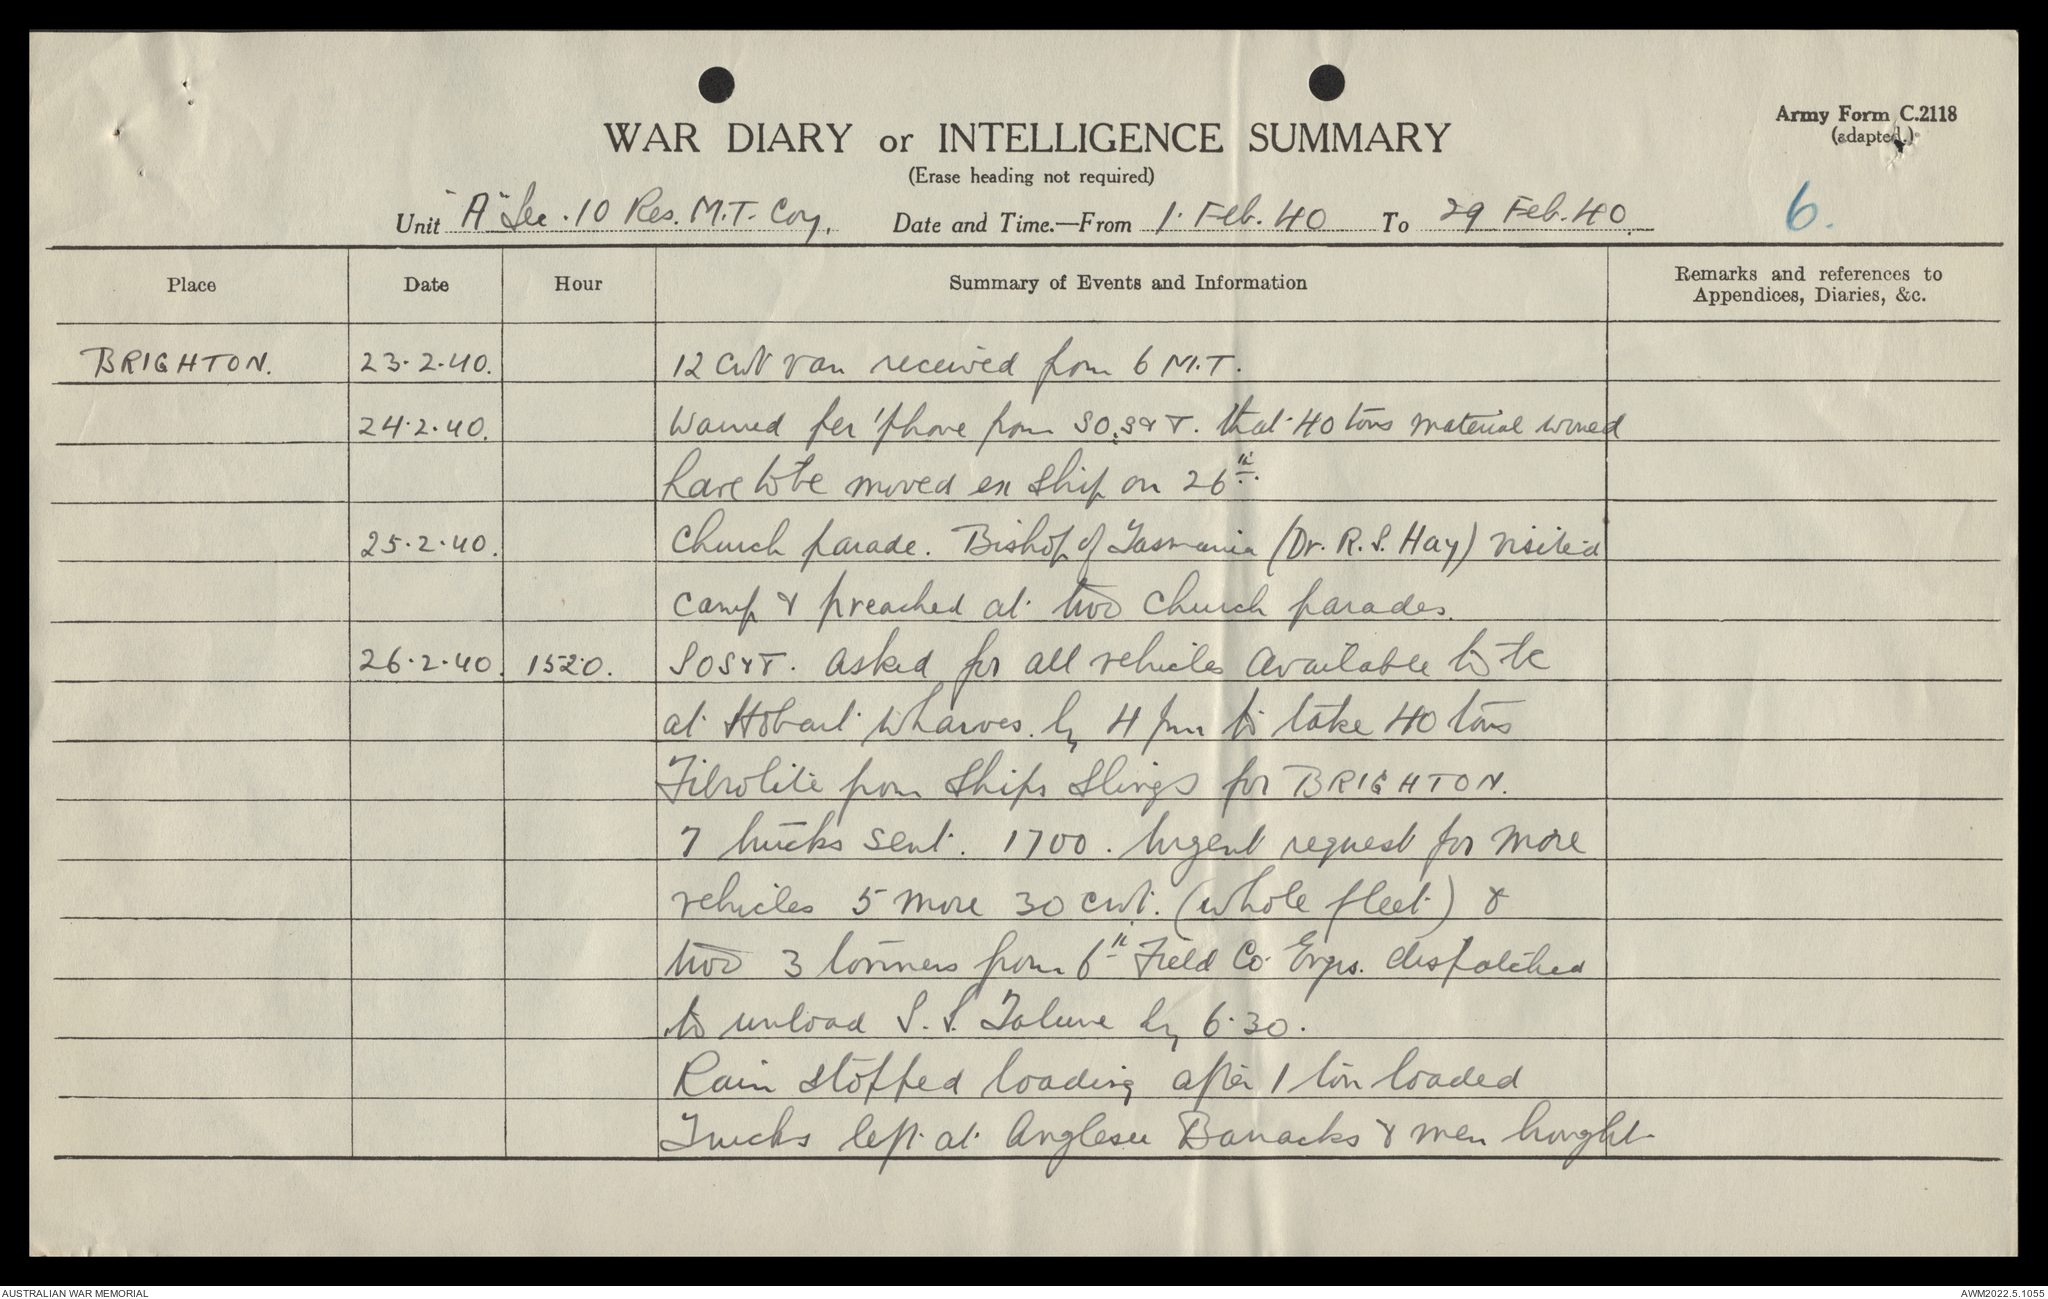 Army Form C.2118
(adapted.)
WAR DIARY or INTELLIGENCE SUMMARY
(Erase heading not required)
Unit "A" Sec. 10 Res. M.T. Coy. Date and Time.—From 1. Feb. 40 To 29 Feb. 40.
6.
Place Date Hour Summary of Events and Information Remarks and references to
Appendices, Diaries, &c.
BRIGHTON. 23.2.40. 12 cwt van received from 6 M.T.
24.2.40. Warned per 'phone from SO.S&T. that 40 tons material would
have to be moved ex ship on 26th.
25.2.40. Church parade. Bishop of Tasmania (Dr. R.S. Hay) visited
camp & preached at two church parades.
26.2.40. 1520. SOS&T. asked for all vehicles available to be
at Hobart wharves by 4 pm to take 40 tons
Fibrolite from ships slings for BRIGHTON.
7 trucks sent. 1700. Urgent request for more
vehicles 5 more 30 cwt. (whole fleet) &
two 3 tonners from 6th Field Co. Engrs. dispatched
to unload S.S. Talune by 6.30.
Rain stopped loading after 1 ton loaded
Trucks left at Anglesea Barracks & men brought
AUSTRALIAN WAR MEMORIAL AWM2022.5.1055